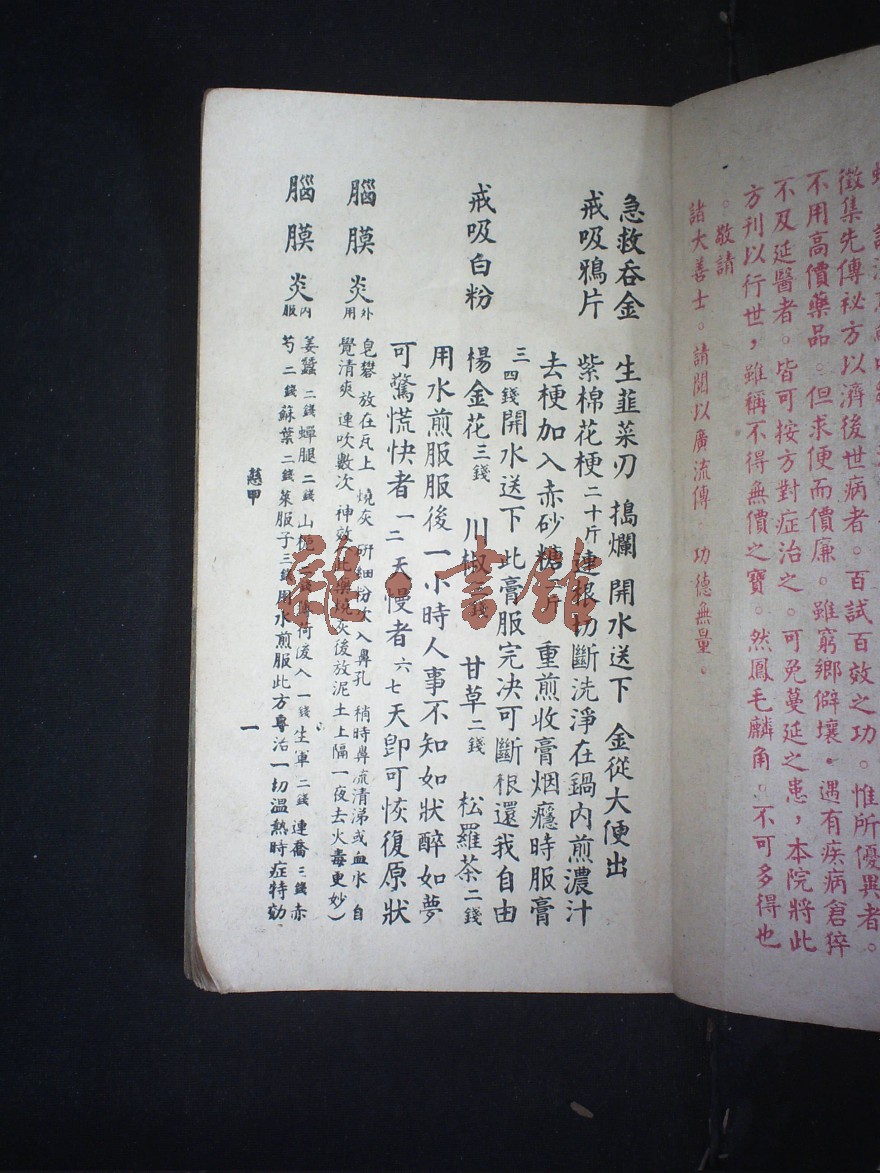 徵集先傳祕方以濟後世病者。百試百效之功。惟所優異者。
不用高價藥品。但求便而價廉。雖窮鄉僻壤。遇有疾病倉猝
不及延醫者。皆可按方對症治之。可免蔓延之患,本院將此
方刊以行世,雖稱不得無價之寶。然鳳毛麟角。不可多得也
。敬請
諸大善士。請閱以廣流傳。功德無量。
急救吞金 生韮菜刃 搗爛 開水送下 金從大便出
戒吸鴉片 紫棉花梗二十斤連根切斷洗淨在鍋内煎濃汁
去梗加入赤砂糖斤 重煎收膏烟癮時服膏
三四錢開水送下此膏服完决可斷根還我自由
戒吸白粉 楊金花三錢 川椒錢 甘草二錢 松羅茶二錢
用水煎服服後一小時人事不知如狀醉如夢
可驚慌快者一二天慢者六七天卽可恢復原狀
腦膜炎外用 皂礬 放在瓦上 燒灰 研細粉吹入鼻孔 稍時鼻流清涕或血水 自
覺清爽 連吹數次 神效此藥燒灰後放泥土上隔一夜去火毒更妙)
腦膜炎内服 姜蠶二錢蟬腿二錢山梔荷後入一錢生軍二錢連喬三錢赤
芍二錢蘇葉二錢萊服子三錢用水煎服此方專治一切溫熱時症特効
慈甲
一
雜·書館